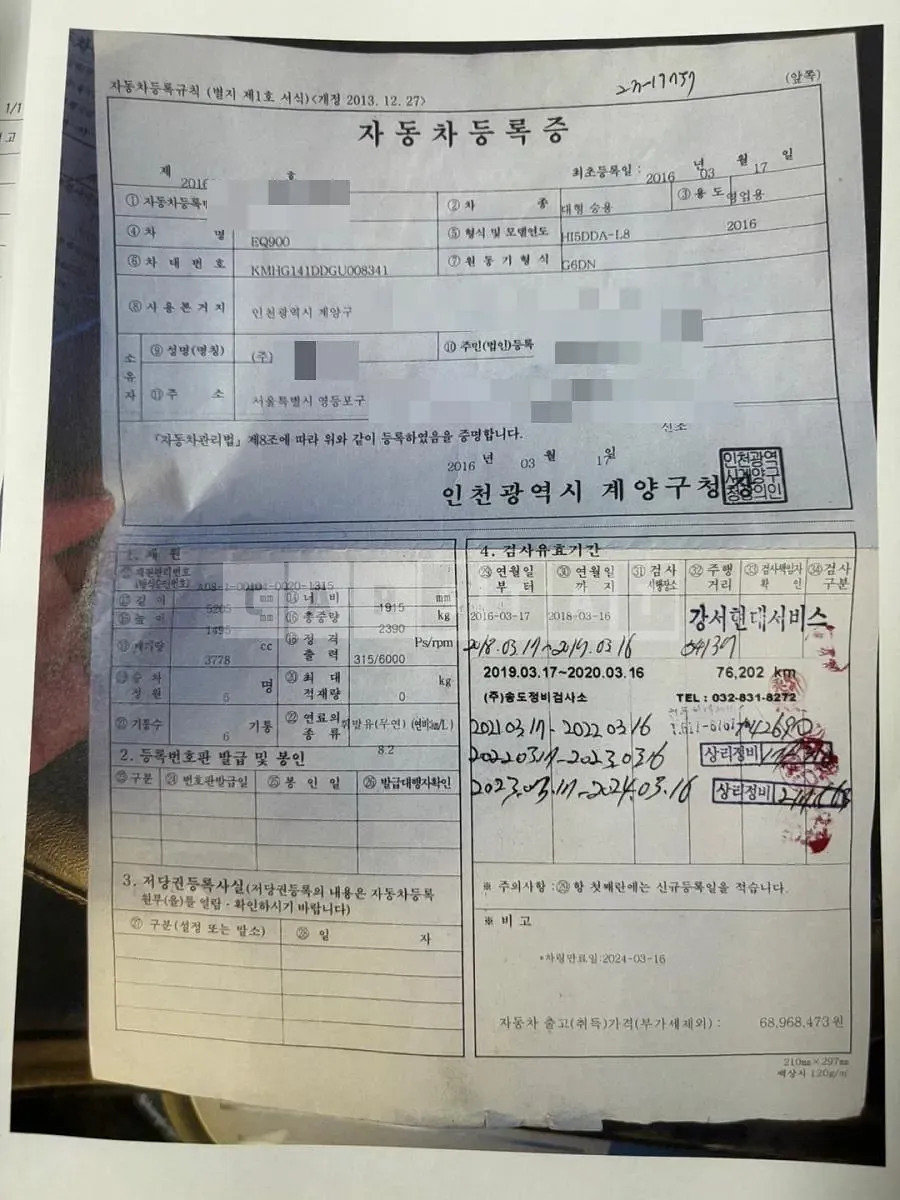 자동차등록규칙 (별지 제1호 서식)<개정 2013. 12. 27>
(앞쪽)
자동차등록증
제 2016 호
최초등록일 : 2016 년 03 월 17 일
① 자동차등록번
② 차 종 대형 승용
③ 용 도 영업용
④ 차 명 EQ900
⑤ 형식 및 모델연도 HI5DDA-L8 2016
⑥ 차 대 번 호 KMHG141DDGU008341
⑦ 원 동 기 형 식 G6DN
⑧ 사 용 본 거 지 인천광역시 계양구
소유자
⑨ 성명(명칭) (주)
⑩ 주민(법인)등록
⑪ 주 소 서울특별시 영등포구
『자동차관리법』 제8조에 따라 위와 같이 등록하였음을 증명합니다.
2016 년 03 월 17 일
인천광역시 계양구청장
인천광역
시계양구
청장의인
1. 제 원
제원관리번호
(형식승인번호)
⑬ 길 이 5205 mm
⑭ 너 비 1915 mm
⑮ 높 이 1495
⑯ 총중량 2390 kg
⑰ 배기량 3778 cc
⑱ 정 격 출 력 315/6000 Ps/rpm
⑲ 승 차 정 원 5 명
⑳ 최 대 적재량 0 kg
㉑ 기통수 6 기통
㉒ 연료의 종 류 휘발유(무연) (연비㎞/L) 8.2
2. 등록번호판 발급 및 봉인
㉓ 구분 ㉔ 번호판발급일 ㉕ 봉 인 일 ㉖ 발급대행자확인
3. 저당권등록사실(저당권등록의 내용은 자동차등록
원부(을)를 열람ㆍ확인하시기 바랍니다)
㉗ 구분(설정 또는 말소) ㉘ 일 자
4. 검사유효기간
㉙ 연월일 부 터 ㉚ 연월일 까 지 ㉛ 검 사 시행장소 ㉜ 주행 거리 ㉝ 검사책임자 확 인 ㉞ 검사 구분
2016-03-17 2018-03-16 강서현대서비스
2018.03.17~2019.03.16
2019.03.17~2020.03.16 76,202 km
(주)송도정비검사소 TEL : 032-831-8272
2021.03.17 - 2022.03.16
2022.03.17-2023.03.16 상리정비
2023.03.17-2024.03.16 상리정비
※ 주의사항 : ㉙ 항 첫째란에는 신규등록일을 적습니다.
※ 비 고
*차령만료일:2024-03-16
자동차 출고(취득)가격(부가세제외) : 68,968,473 원
210㎜×297㎜
백상지 120g/㎡